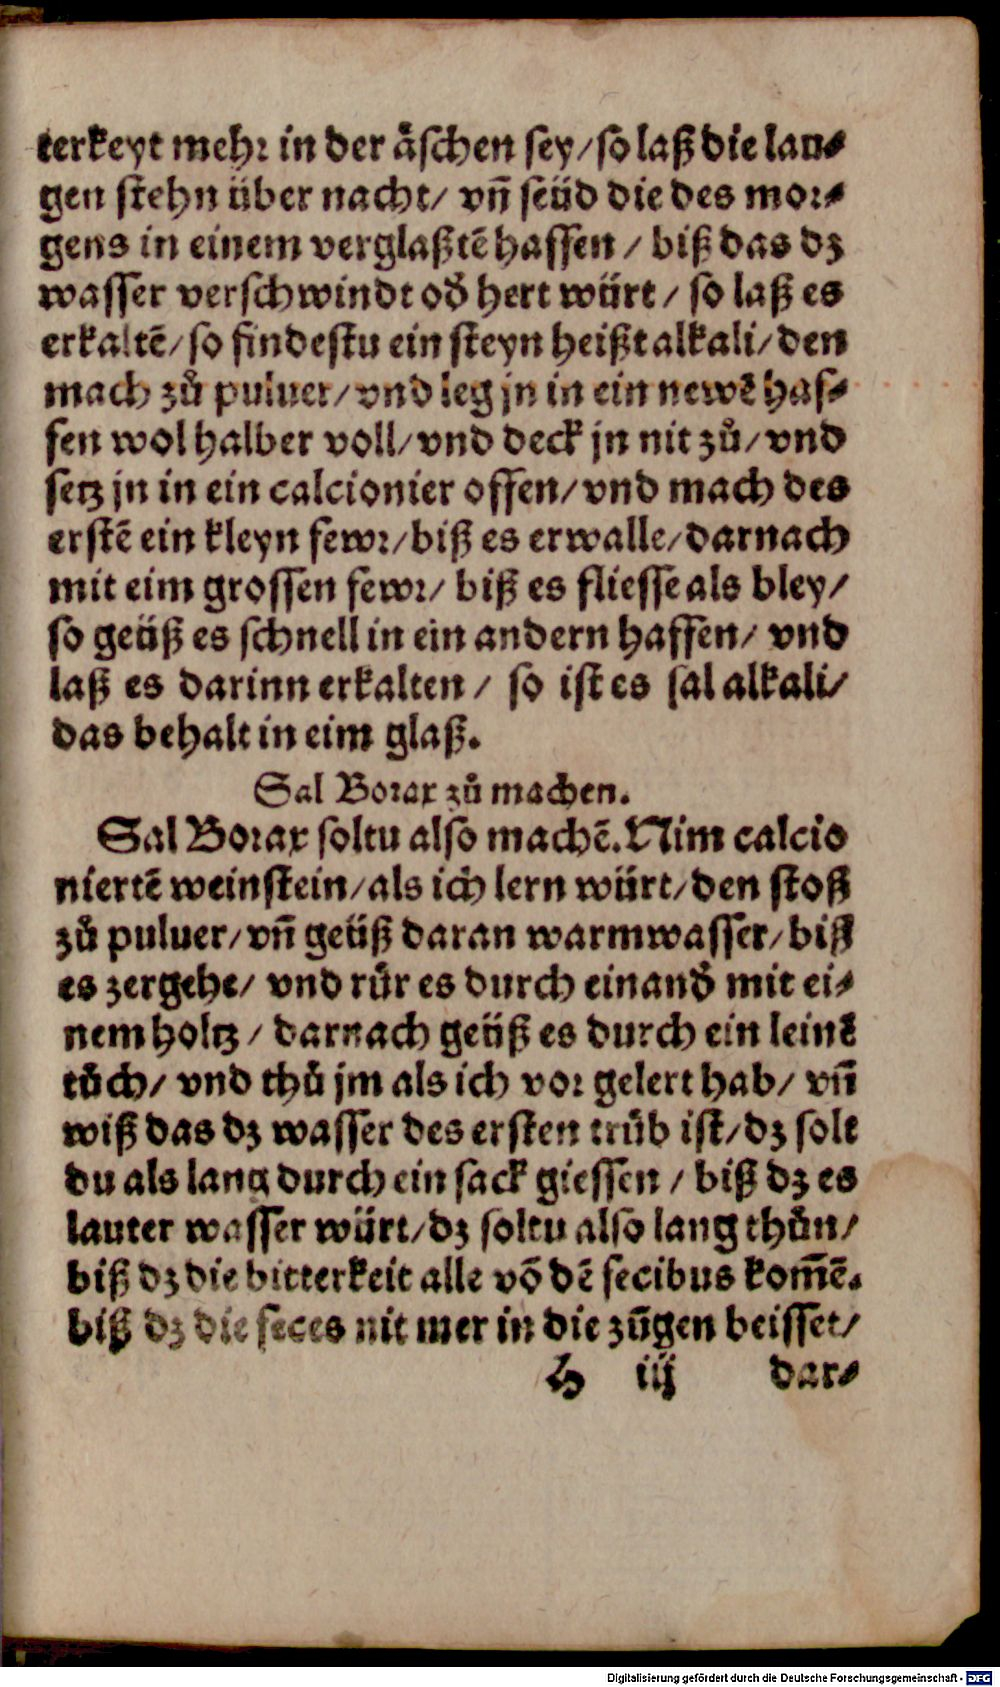 terkeyt mehr in der äschen sey/ so laß die lau-
gen stehn über nacht/ vñ seüd die des mor-
gens in einem verglaßtē haffen / biß das dz
wasser verschwindt oď hert würt / so laß es
erkaltē/ so findestu ein steyn heißt alkali/ den
mach zů puluer/ vnd leg jn in ein newē haf-
fen wol halber voll/ vnd deck jn nit zů/ vnd
setz jn in ein calcionier offen/ vnd mach des
erstē ein kleyn fewr/ biß es erwalle/ darnach
mit eim grossen fewr/ biß es fliesse als bley/
so geüß es schnell in ein andern haffen/ vnd
laß es darinn erkalten / so ist es sal alkali/
das behalt in eim glaß.
Sal Borax zů machen.
Sal Borax soltu also machē. Nim calcio
niertē weinstein/ als ich lern würt/ den stoß
zů puluer/ vñ geüß daran warm wasser/ biß
es zergehe/ vnd rür es durch einanď mit ei-
nem holtz / darnach geüß es durch ein leinē
tůch/ vnd thů jm als ich vor gelert hab/ vñ
wiß das dz wasser des ersten trüb ist/ dz solt
du als lang durch ein sack giessen / biß dz es
lauter wasser würt/ dz soltu also lang thůn/
biß dz die bitterkeit alle võ dē fecibus kom̄ē.
biß dz die feces nit mer in die zũgen beisset/
H iij dar-
Digitalisierung gefördert durch die Deutsche Forschungsgemeinschaft - DFG